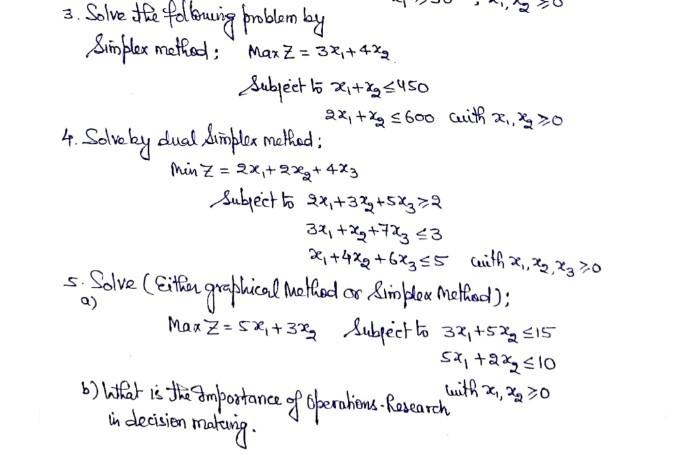 x₁ ≥ 30 , x₁, x₂ ≥ 0
3. Solve the following problem by
Simplex method: Max Z = 3x₁ + 4x₂
Subject to x₁ + x₂ ≤ 450
2x₁ + x₂ ≤ 600 with x₁, x₂ ≥ 0
4. Solve by dual Simplex method:
Min Z = 2x₁ + 2x₂ + 4x₃
Subject to 2x₁ + 3x₂ + 5x₃ ≥ 2
3x₁ + x₂ + 7x₃ ≤ 3
x₁ + 4x₂ + 6x₃ ≤ 5 with x₁, x₂, x₃ ≥ 0
5. Solve (Either graphical Method or Simplex Method);
a)
Max Z = 5x₁ + 3x₂ Subject to 3x₁ + 5x₂ ≤ 15
5x₁ + 2x₂ ≤ 10
with x₁, x₂ ≥ 0
b) What is the Importance of Operations-Research
in decision making.